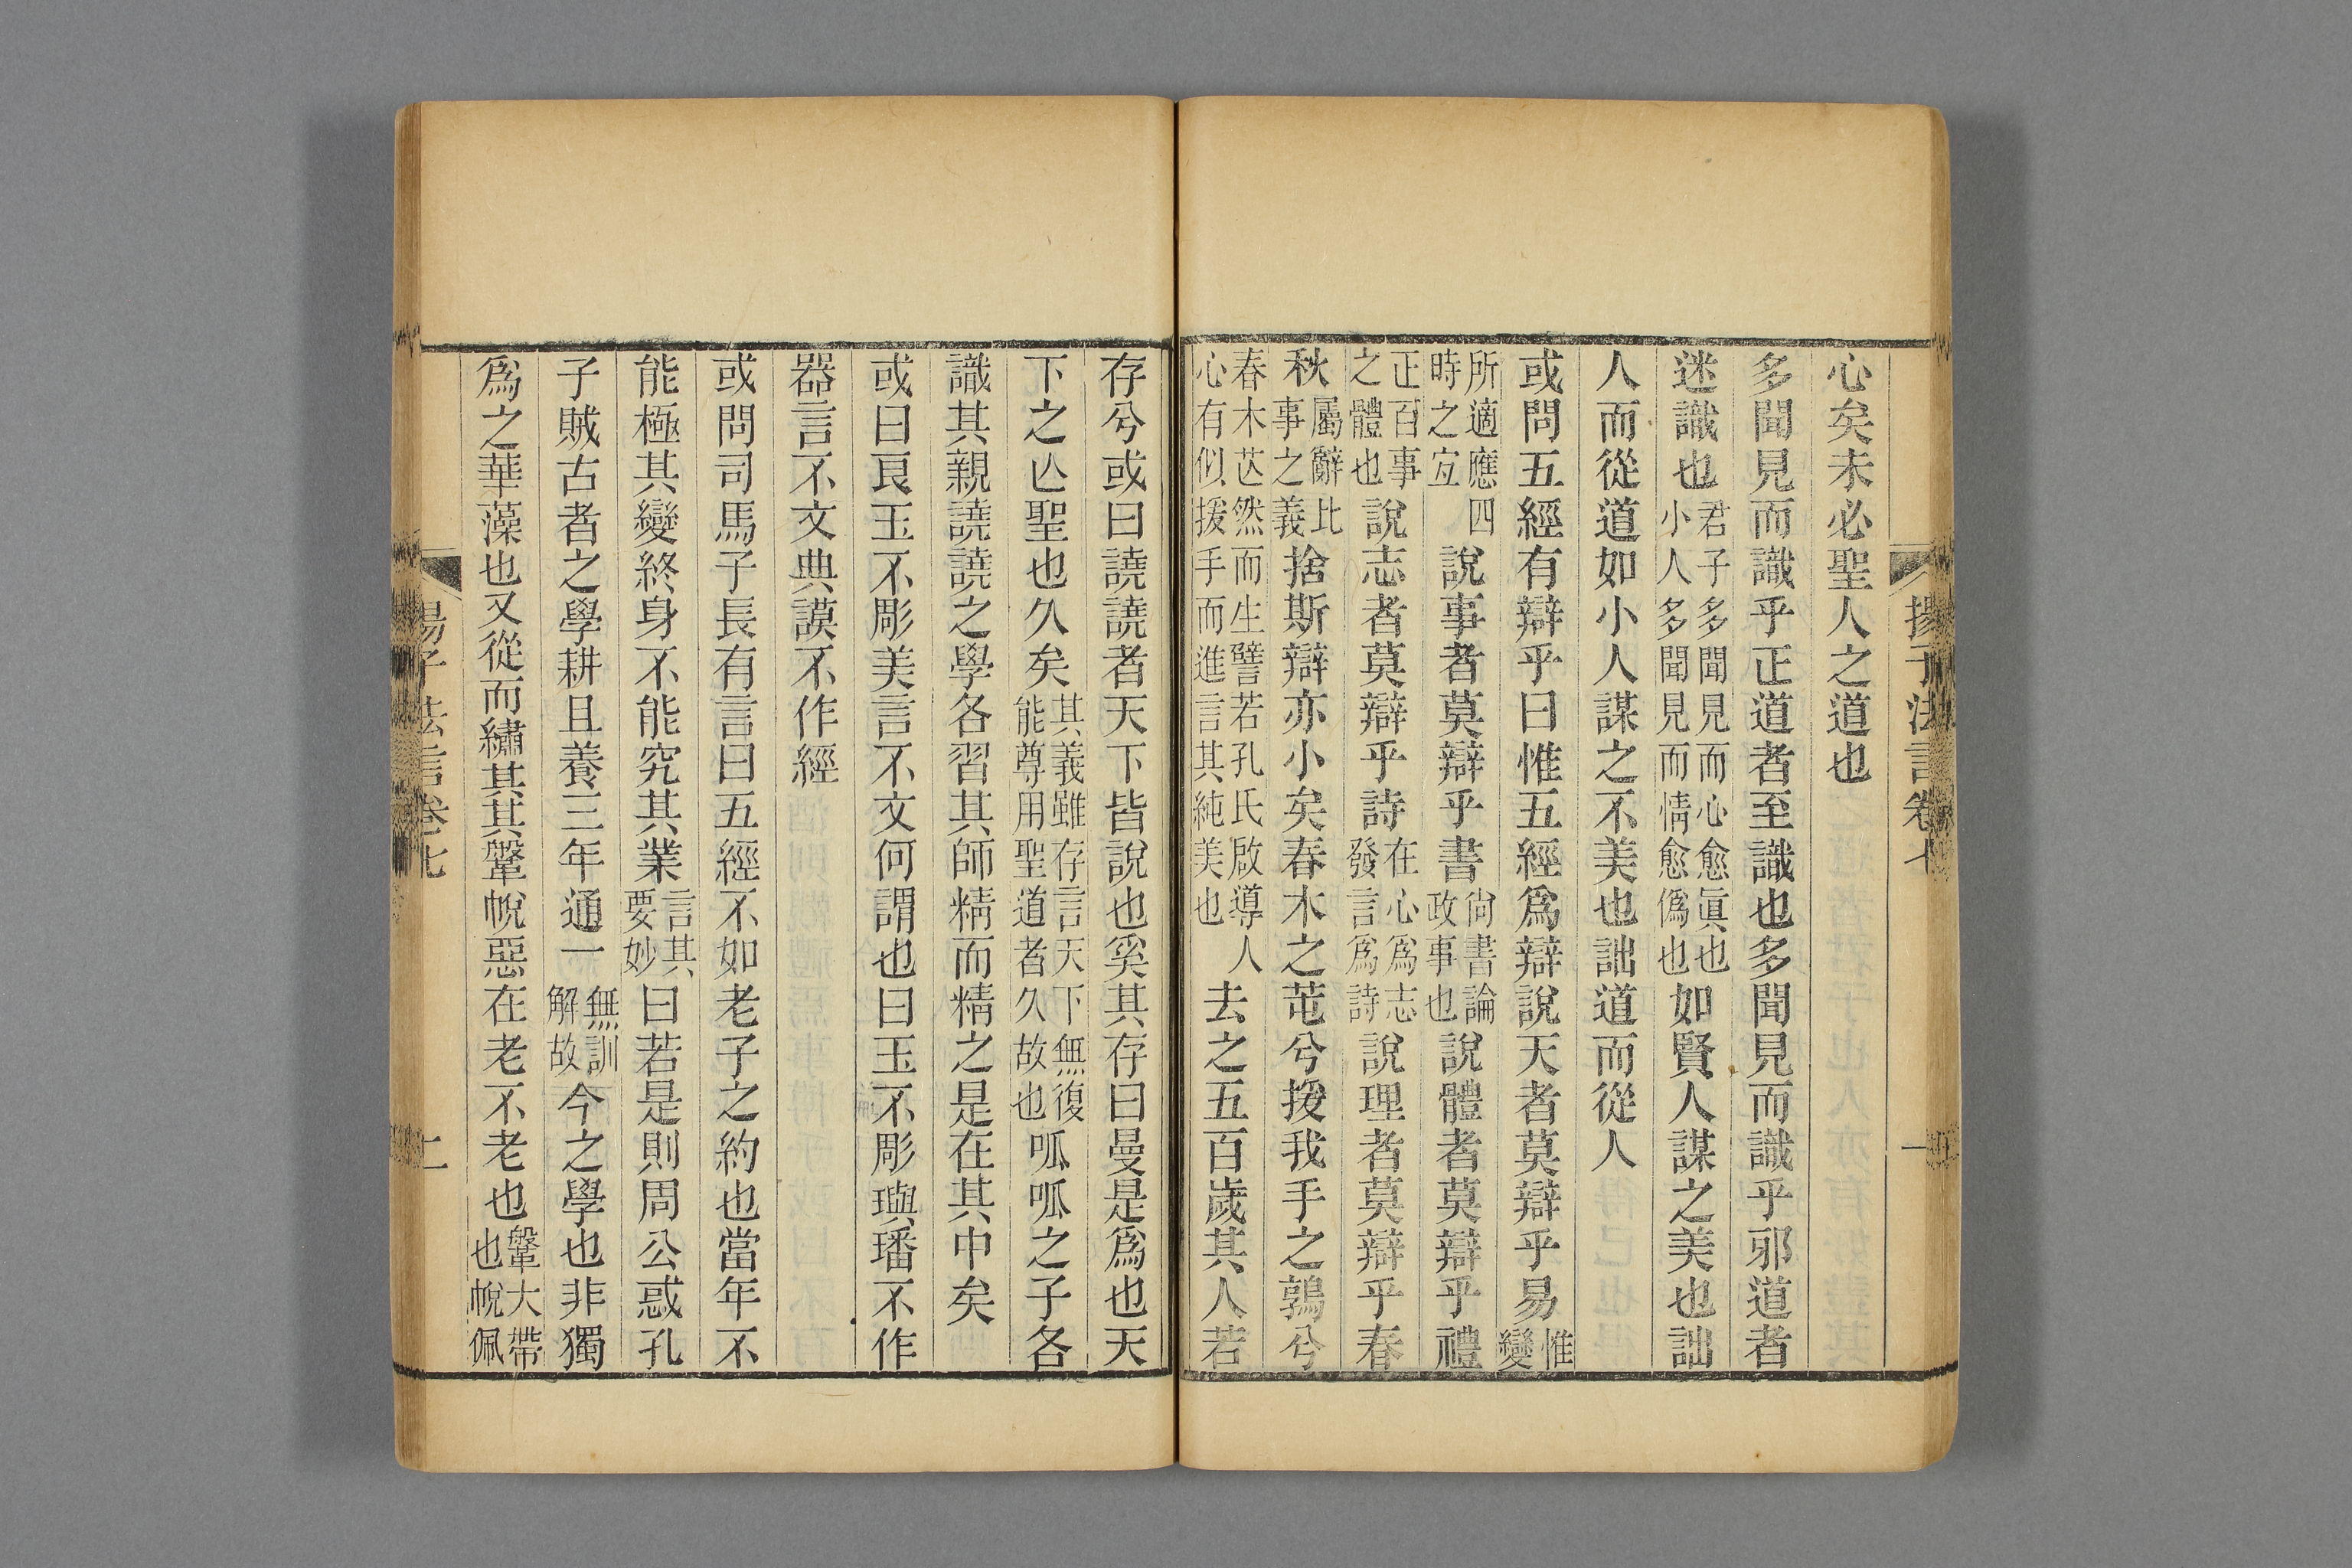 揚子法言卷七 一
心矣未必聖人之道也
多聞見而識乎正道者至識也多聞見而識乎邪道者
迷識也君子多聞見而心愈眞也小人多聞見而情愈僞也如賢人謀之美也詘
人而從道如小人謀之不美也詘道而從人
或問五經有辯乎曰惟五經爲辯說天者莫辯乎易惟變
所適應四時之宜說事者莫辯乎書尙書論政事也說體者莫辯乎禮
正百事之體也說志者莫辯乎詩在心爲志發言爲詩說理者莫辯乎春
秋屬辭比事之義捨斯辯亦小矣春木之芚兮援我手之鶉兮
春木芚然而生譬若孔氏啟導人心有似援手而進言其純美也去之五百歲其人若
存兮或曰譊譊者天下皆說也奚其存曰曼是爲也天
下之亾聖也久矣其義雖存言天下無復能尊用聖道者久故也呱呱之子各
識其親譊譊之學各習其師精而精之是在其中矣
或曰良玉不彫美言不文何謂也曰玉不彫璵璠不作
器言不文典謨不作經
或問司馬子長有言曰五經不如老子之約也當年不
能極其變終身不能究其業言其要妙曰若是則周公惑孔
子賊古者之學耕且養三年通一無訓解故今之學也非獨
爲之華藻也又從而繡其鞶帨惡在老不老也鞶大帶也帨佩
揚子法言卷七 二